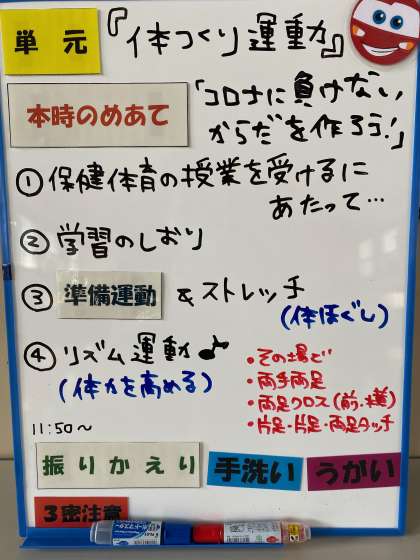 単元 『体つくり運動』
本時のめあて 「コロナに負けない
からだを作ろう!」
① 保健体育の授業を受けるに
あたって…
② 学習のしおり
③ 準備運動 & ストレッチ
(体ほぐし)
④ リズム運動♪
(体力を高める)
・その場で
・両手両足
・両足クロス(前・横)
・片足・片足・両足タッチ
11:50~
振りかえり 手洗い うがい
3密注意